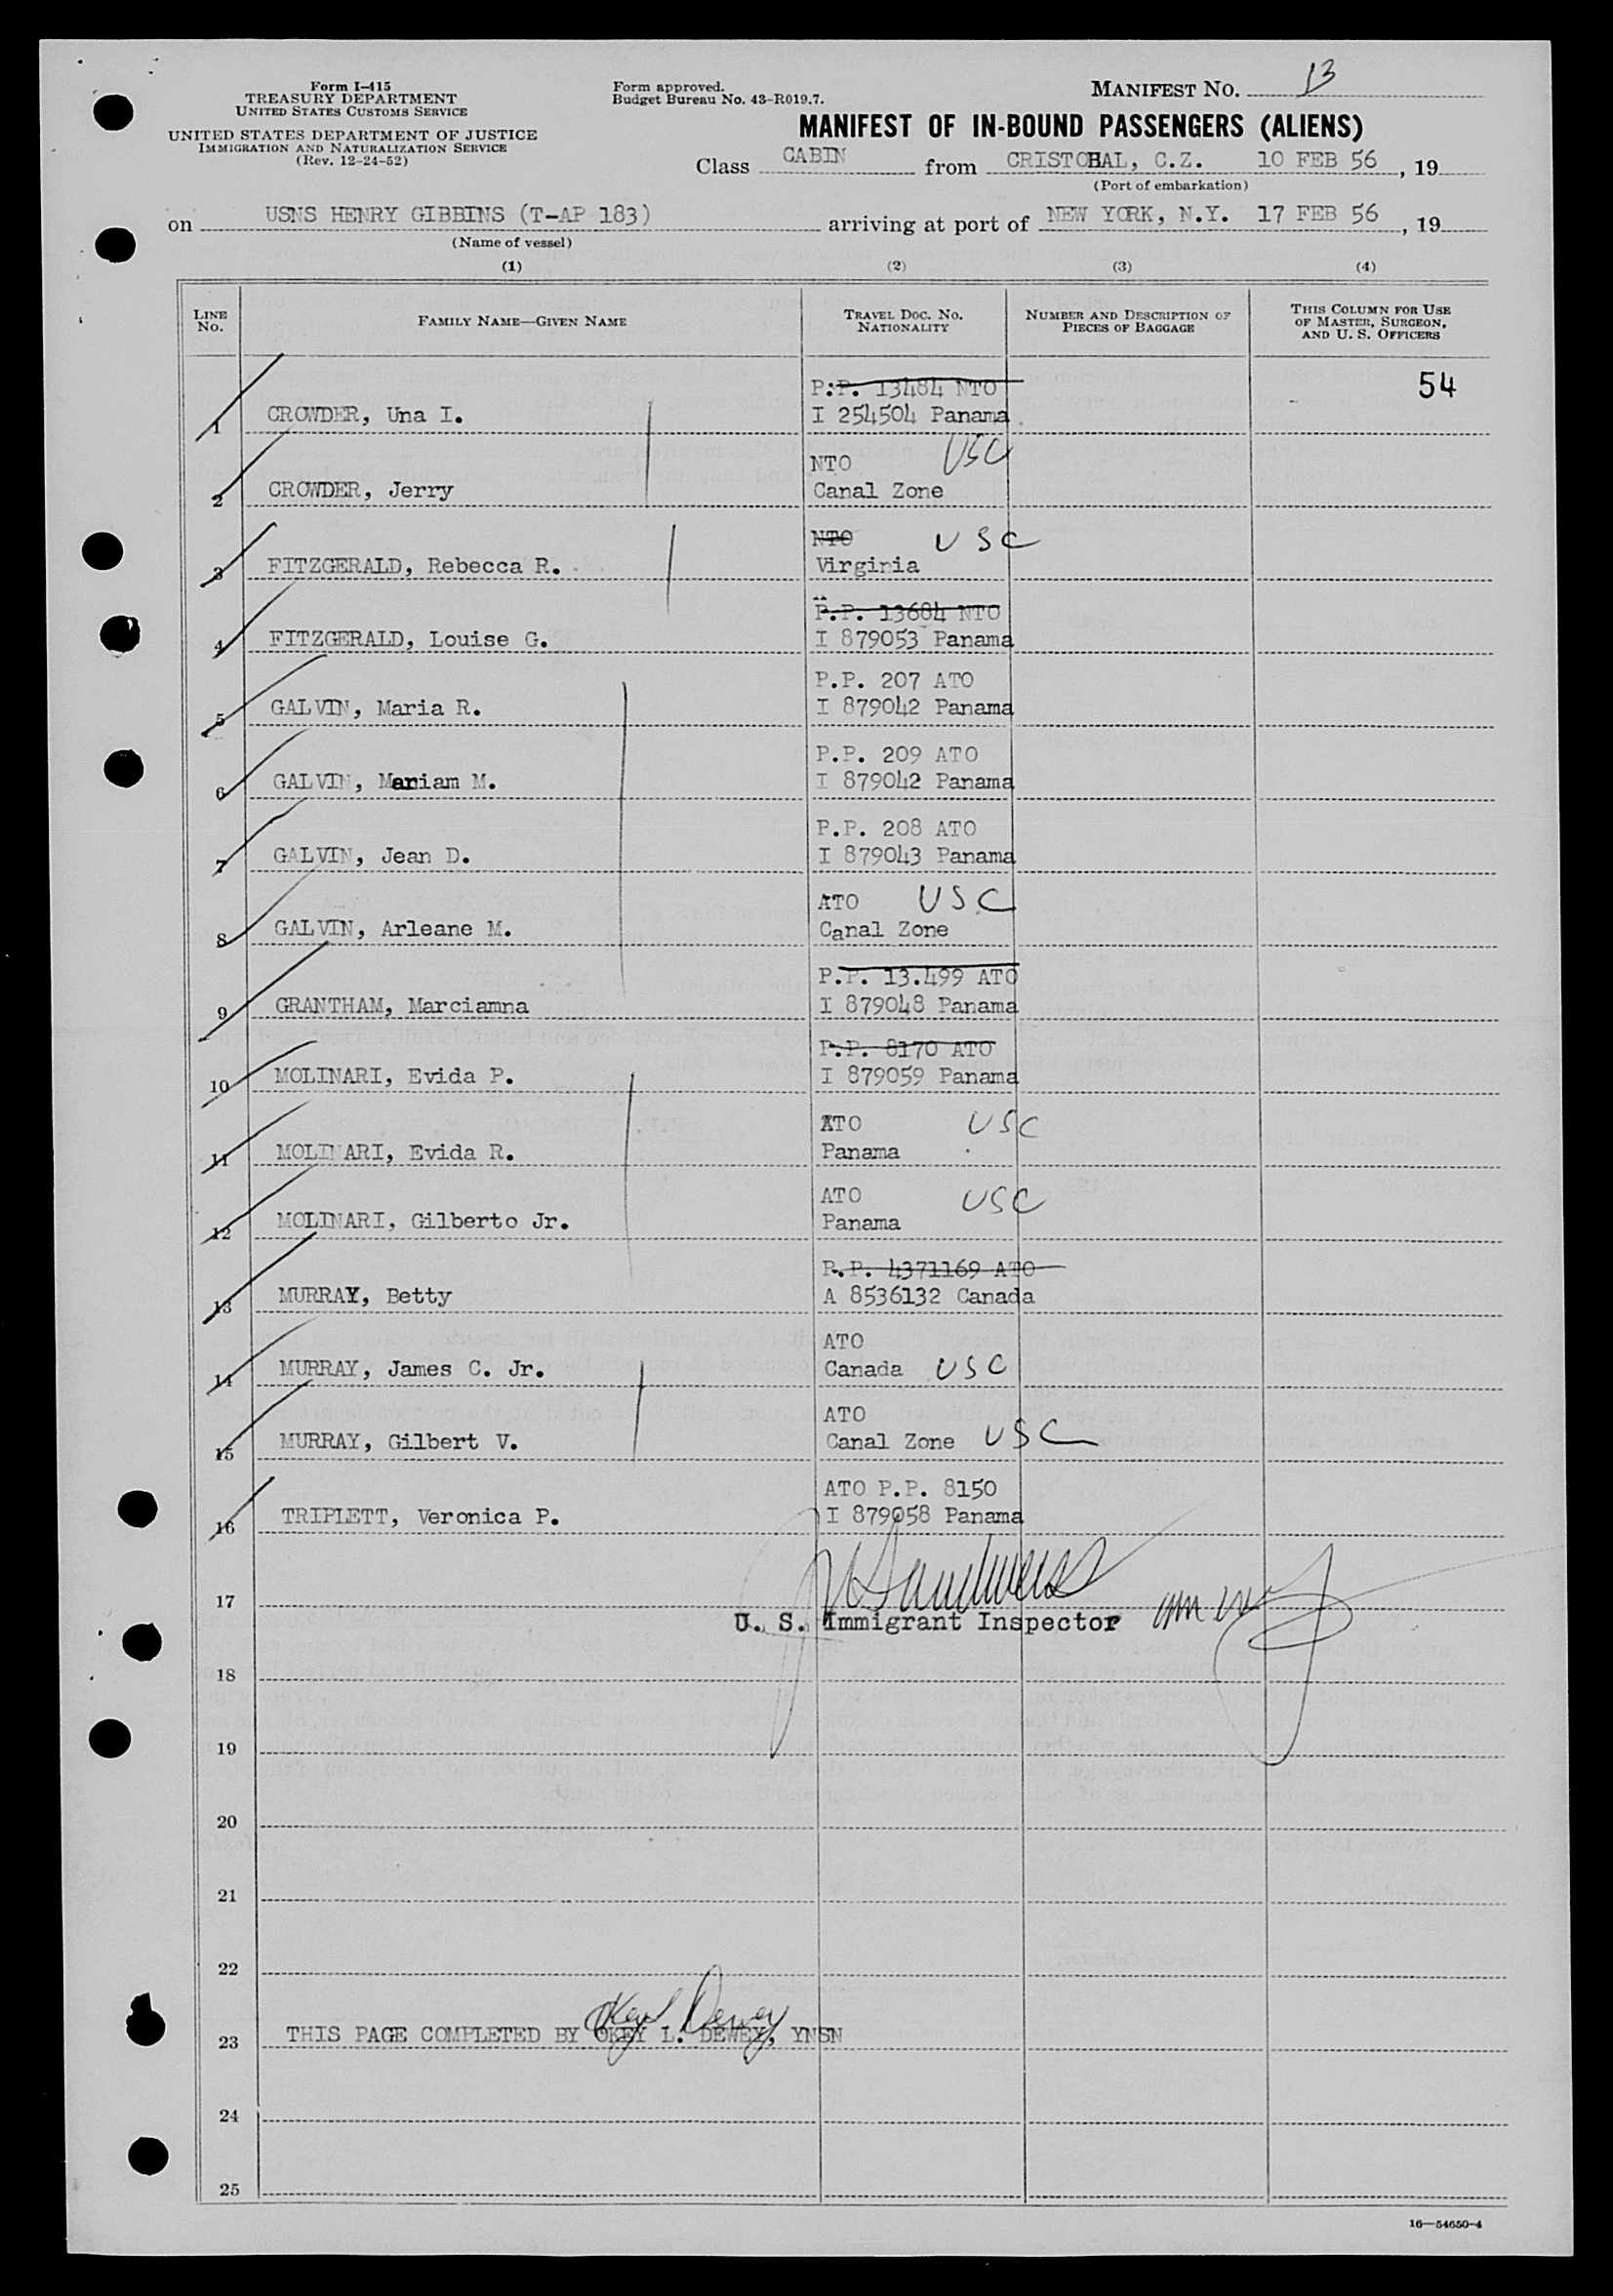 Form I-415
TREASURY DEPARTMENT
UNITED STATES CUSTOMS SERVICE
UNITED STATES DEPARTMENT OF JUSTICE
IMMIGRATION AND NATURALIZATION SERVICE
(Rev. 12-24-52)
Form approved.
Budget Bureau No. 43-R019.7.
MANIFEST NO. 13
MANIFEST OF IN-BOUND PASSENGERS (ALIENS)
Class CABIN from CRISTOBAL, C.Z. 10 FEB 56, 19
(Port of embarkation)
on USNS HENRY GIBBINS (T-AP 183) arriving at port of NEW YORK, N.Y. 17 FEB 56, 19
(Name of vessel)
(1) (2) (3) (4)
LINE NO.
FAMILY NAME—GIVEN NAME
TRAVEL DOC. NO. NATIONALITY
NUMBER AND DESCRIPTION OF PIECES OF BAGGAGE
THIS COLUMN FOR USE OF MASTER, SURGEON, AND U. S. OFFICERS
P.P. 13484 NTO 54
1 CROWDER, Una I. I 254504 Panama
NTO USC
2 CROWDER, Jerry Canal Zone
NTO USC
3 FITZGERALD, Rebecca R. Virginia
P.P. 13684 NTO
4 FITZGERALD, Louise G. I 879053 Panama
P.P. 207 ATO
5 GALVIN, Maria R. I 879042 Panama
P.P. 209 ATO
6 GALVIN, Mariam M. I 879042 Panama
P.P. 208 ATO
7 GALVIN, Jean D. I 879043 Panama
ATO USC
8 GALVIN, Arleane M. Canal Zone
P.P. 13.499 ATO
9 GRANTHAM, Marciamna I 879048 Panama
P.P. 8170 ATO
10 MOLINARI, Evida P. I 879059 Panama
ATO USC
11 MOLINARI, Evida R. Panama
ATO USC
12 MOLINARI, Gilberto Jr. Panama
P.P. 4371169 ATO
13 MURRAY, Betty A 8536132 Canada
ATO
14 MURRAY, James C. Jr. Canada USC
ATO
15 MURRAY, Gilbert V. Canal Zone USC
ATO P.P. 8150
16 TRIPLETT, Veronica P. I 879058 Panama
17
U. S. Immigrant Inspector
18
19
20
21
22
Okey L Dewey
23 THIS PAGE COMPLETED BY OKEY L. DEWEY, YNSN
24
25
16—54650-4